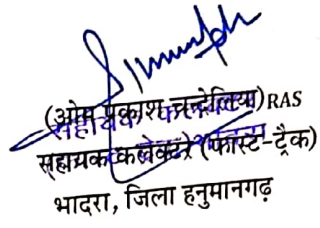 (ओम प्रकाश चन्देलिया) RAS
सहायक कलेक्टर (फास्ट-ट्रैक)
भादरा, जिला हनुमानगढ़